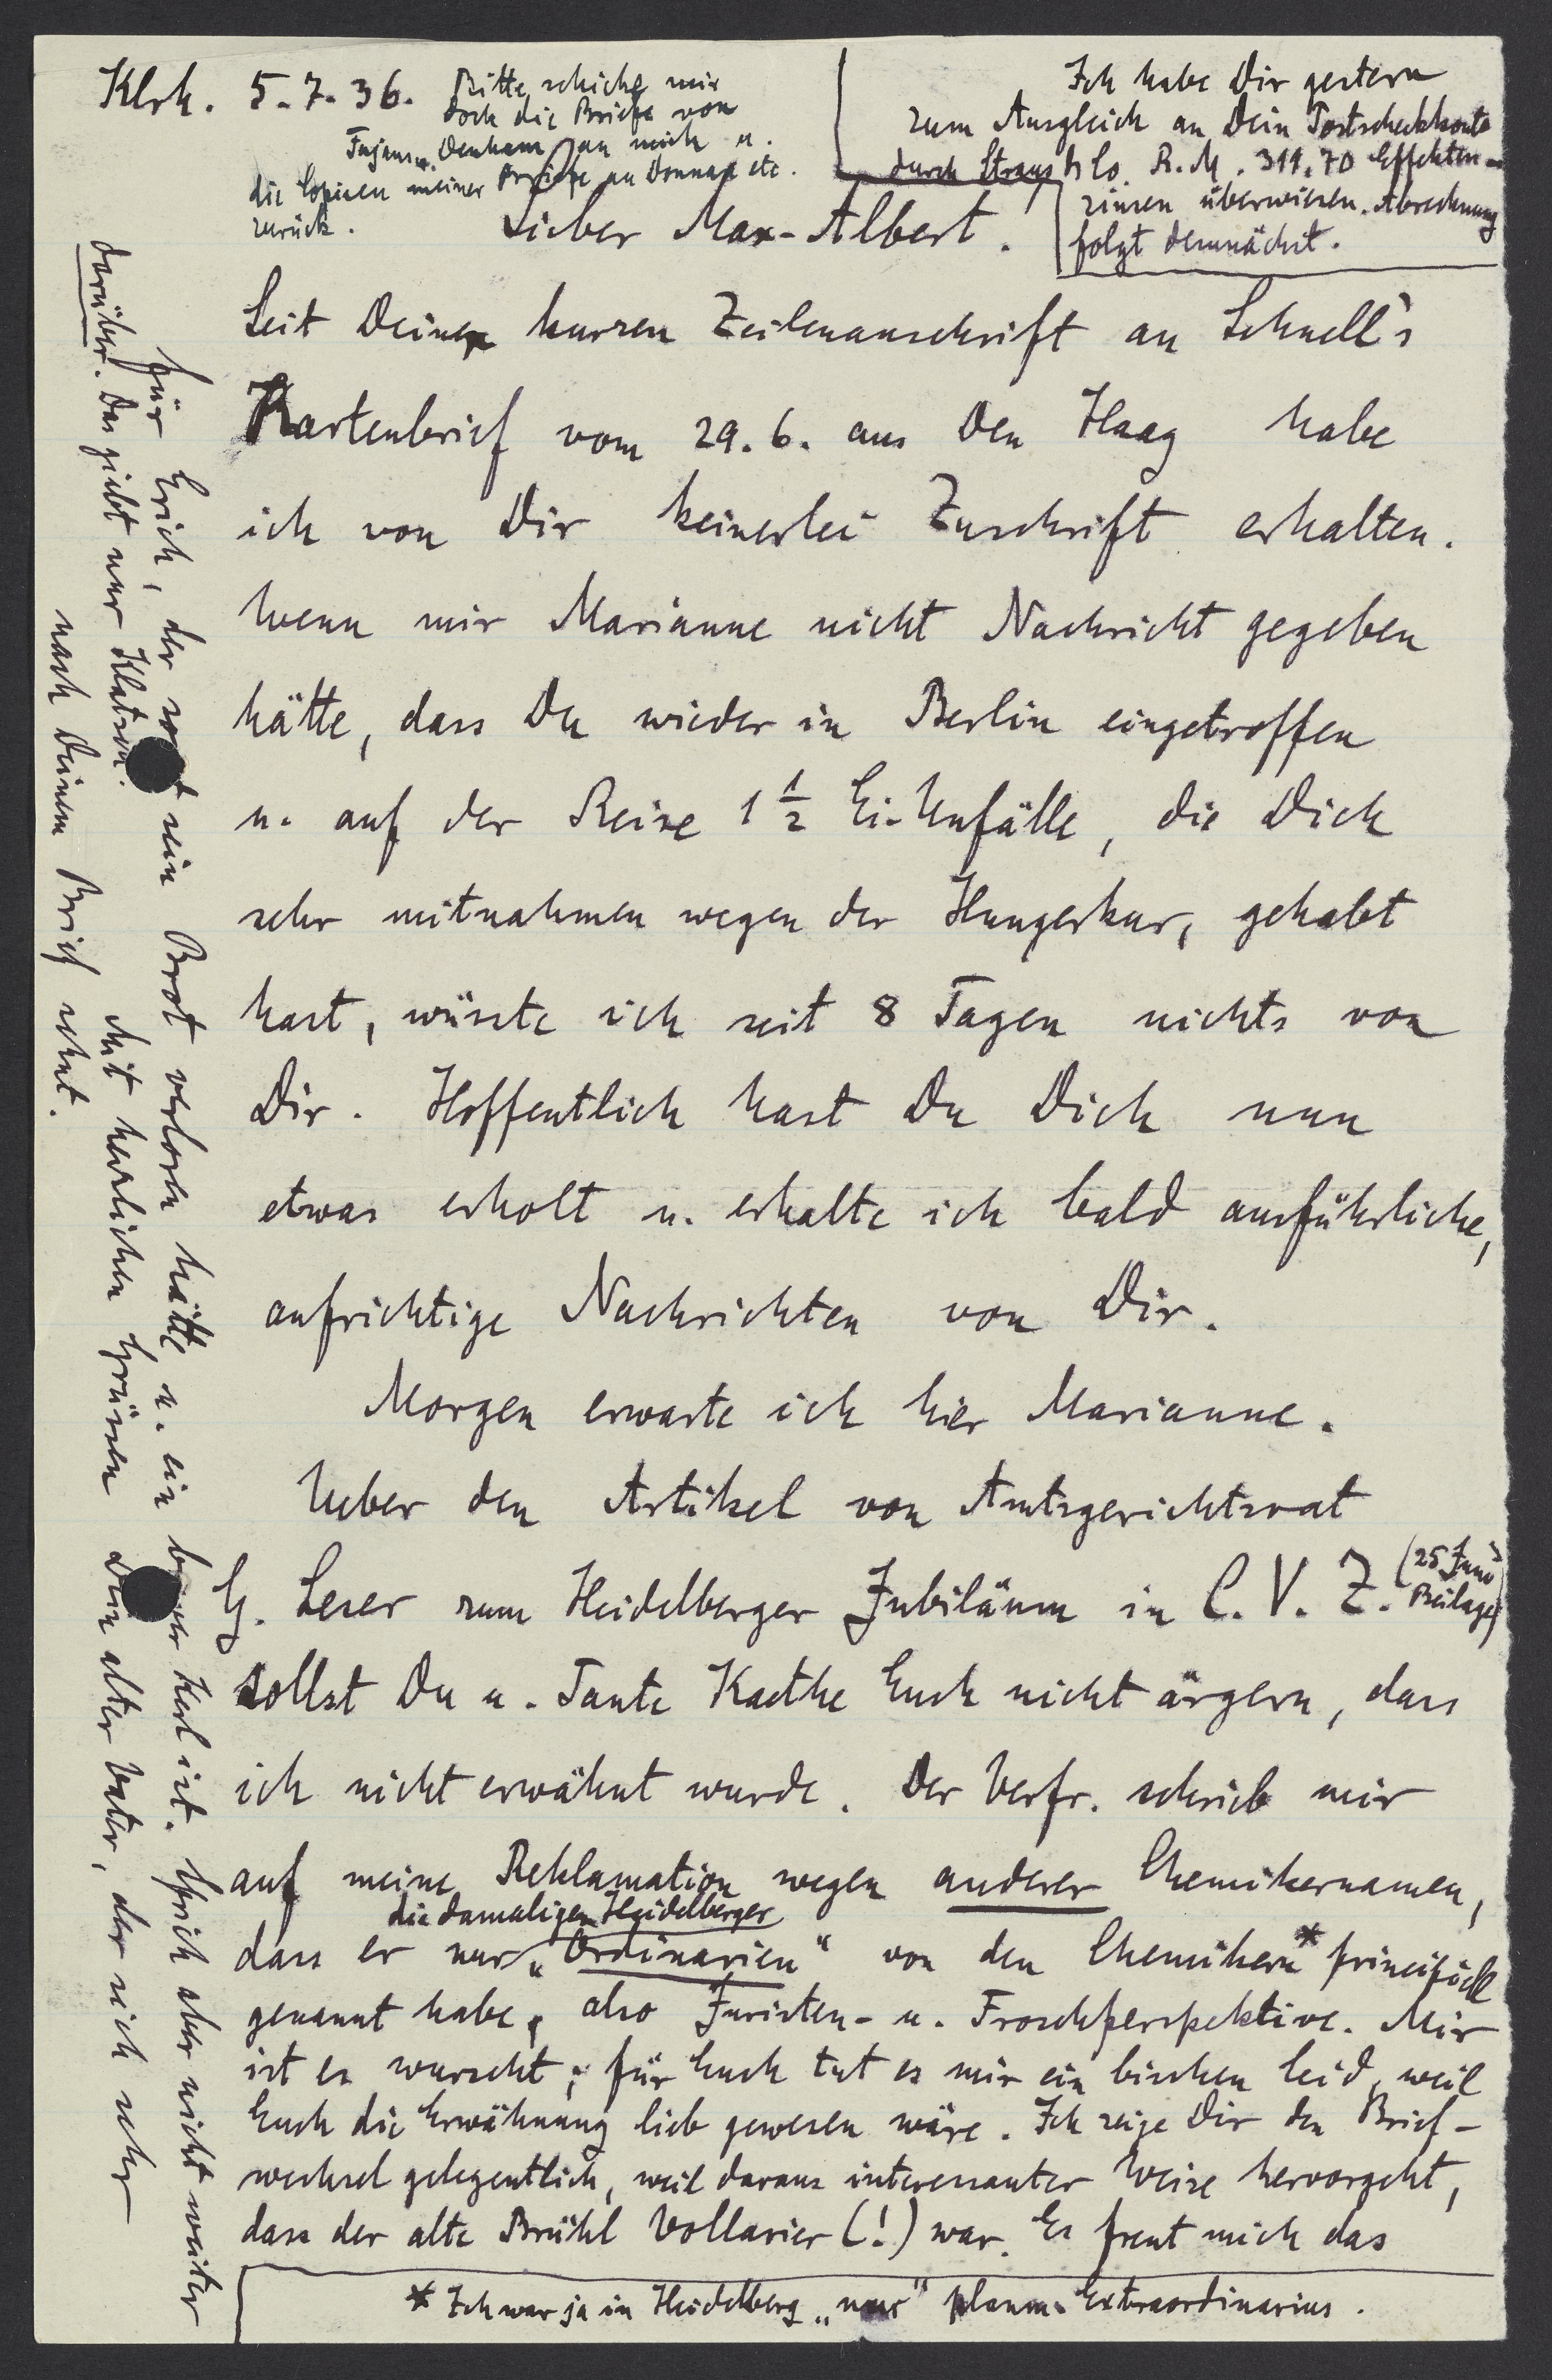 Klrh. 5.7.36.
Bitte schicke mir
doch die Briefe von
Fajans u. Denham an mich u.
die Copieen meiner Briefe an Donnan etc.
zurück.
Ich habe Dir gestern
zum Ausgleich an Dein Postscheckkonto
durch Straus & Co. R.M. 311.70 Effekten-
zinsen überwiesen. Abrechnung
folgt demnächst.
Lieber Max-Albert.
Seit Deiner kurzen Zeilenanschrift an Schnell's
Kartenbrief vom 29.6. aus Den Haag habe
ich von Dir keinerlei Zuschrift erhalten.
Wenn mir Marianne nicht Nachricht gegeben
hätte, dass Du wieder in Berlin eingetroffen
u. auf der Reise 1 1/2 Ei-Unfälle, die Dich
sehr mitnahmen wegen der Hungerkur, gehabt
hast, wüsste ich seit 8 Tagen nichts von
Dir. Hoffentlich hast Du Dich nun
etwas erholt u. erhalte ich bald ausführliche,
aufrichtige Nachrichten von Dir.
Morgen erwarte ich hier Marianne.
Ueber den Artikel von Amtsgerichtsrat
G. Leser zum Heidelberger Jubiläum in C.V.Z. (25 Juni
Beilage)
sollst Du u. Tante Kaethe Euch nicht ärgern, dass
ich nicht erwähnt wurde. Der Verfr. schrieb mir
auf meine Reklamation wegen anderer Chemikernamen,
die damaligen Heidelberger
dass er nur „Ordinarien" von den Chemikern* principiell
genannt habe, also Juristen- u. Froschperspektive. Mir
ist es wurscht; für Euch tut es mir ein bischen leid, weil
Euch die Erwähnung lieb gewesen wäre. Ich zeige Dir den Brief-
wechsel gelegentlich, weil daraus interessanter Weise hervorgeht,
dass der alte Brühl Vollarier (!) war. Es freut mich das
* Ich war ja in Heidelberg „nur" planm. Extraordinarius.
für Erich, der sonst sein Brot verloren hätte u. ein braver Kerl ist. Sprich aber nicht weiter
darüber. Das giebt nur Klatsch.
Mit herzlichen Grüssen Dein alter Vater, der sich sehr
nach Deinem Brief sehnt.